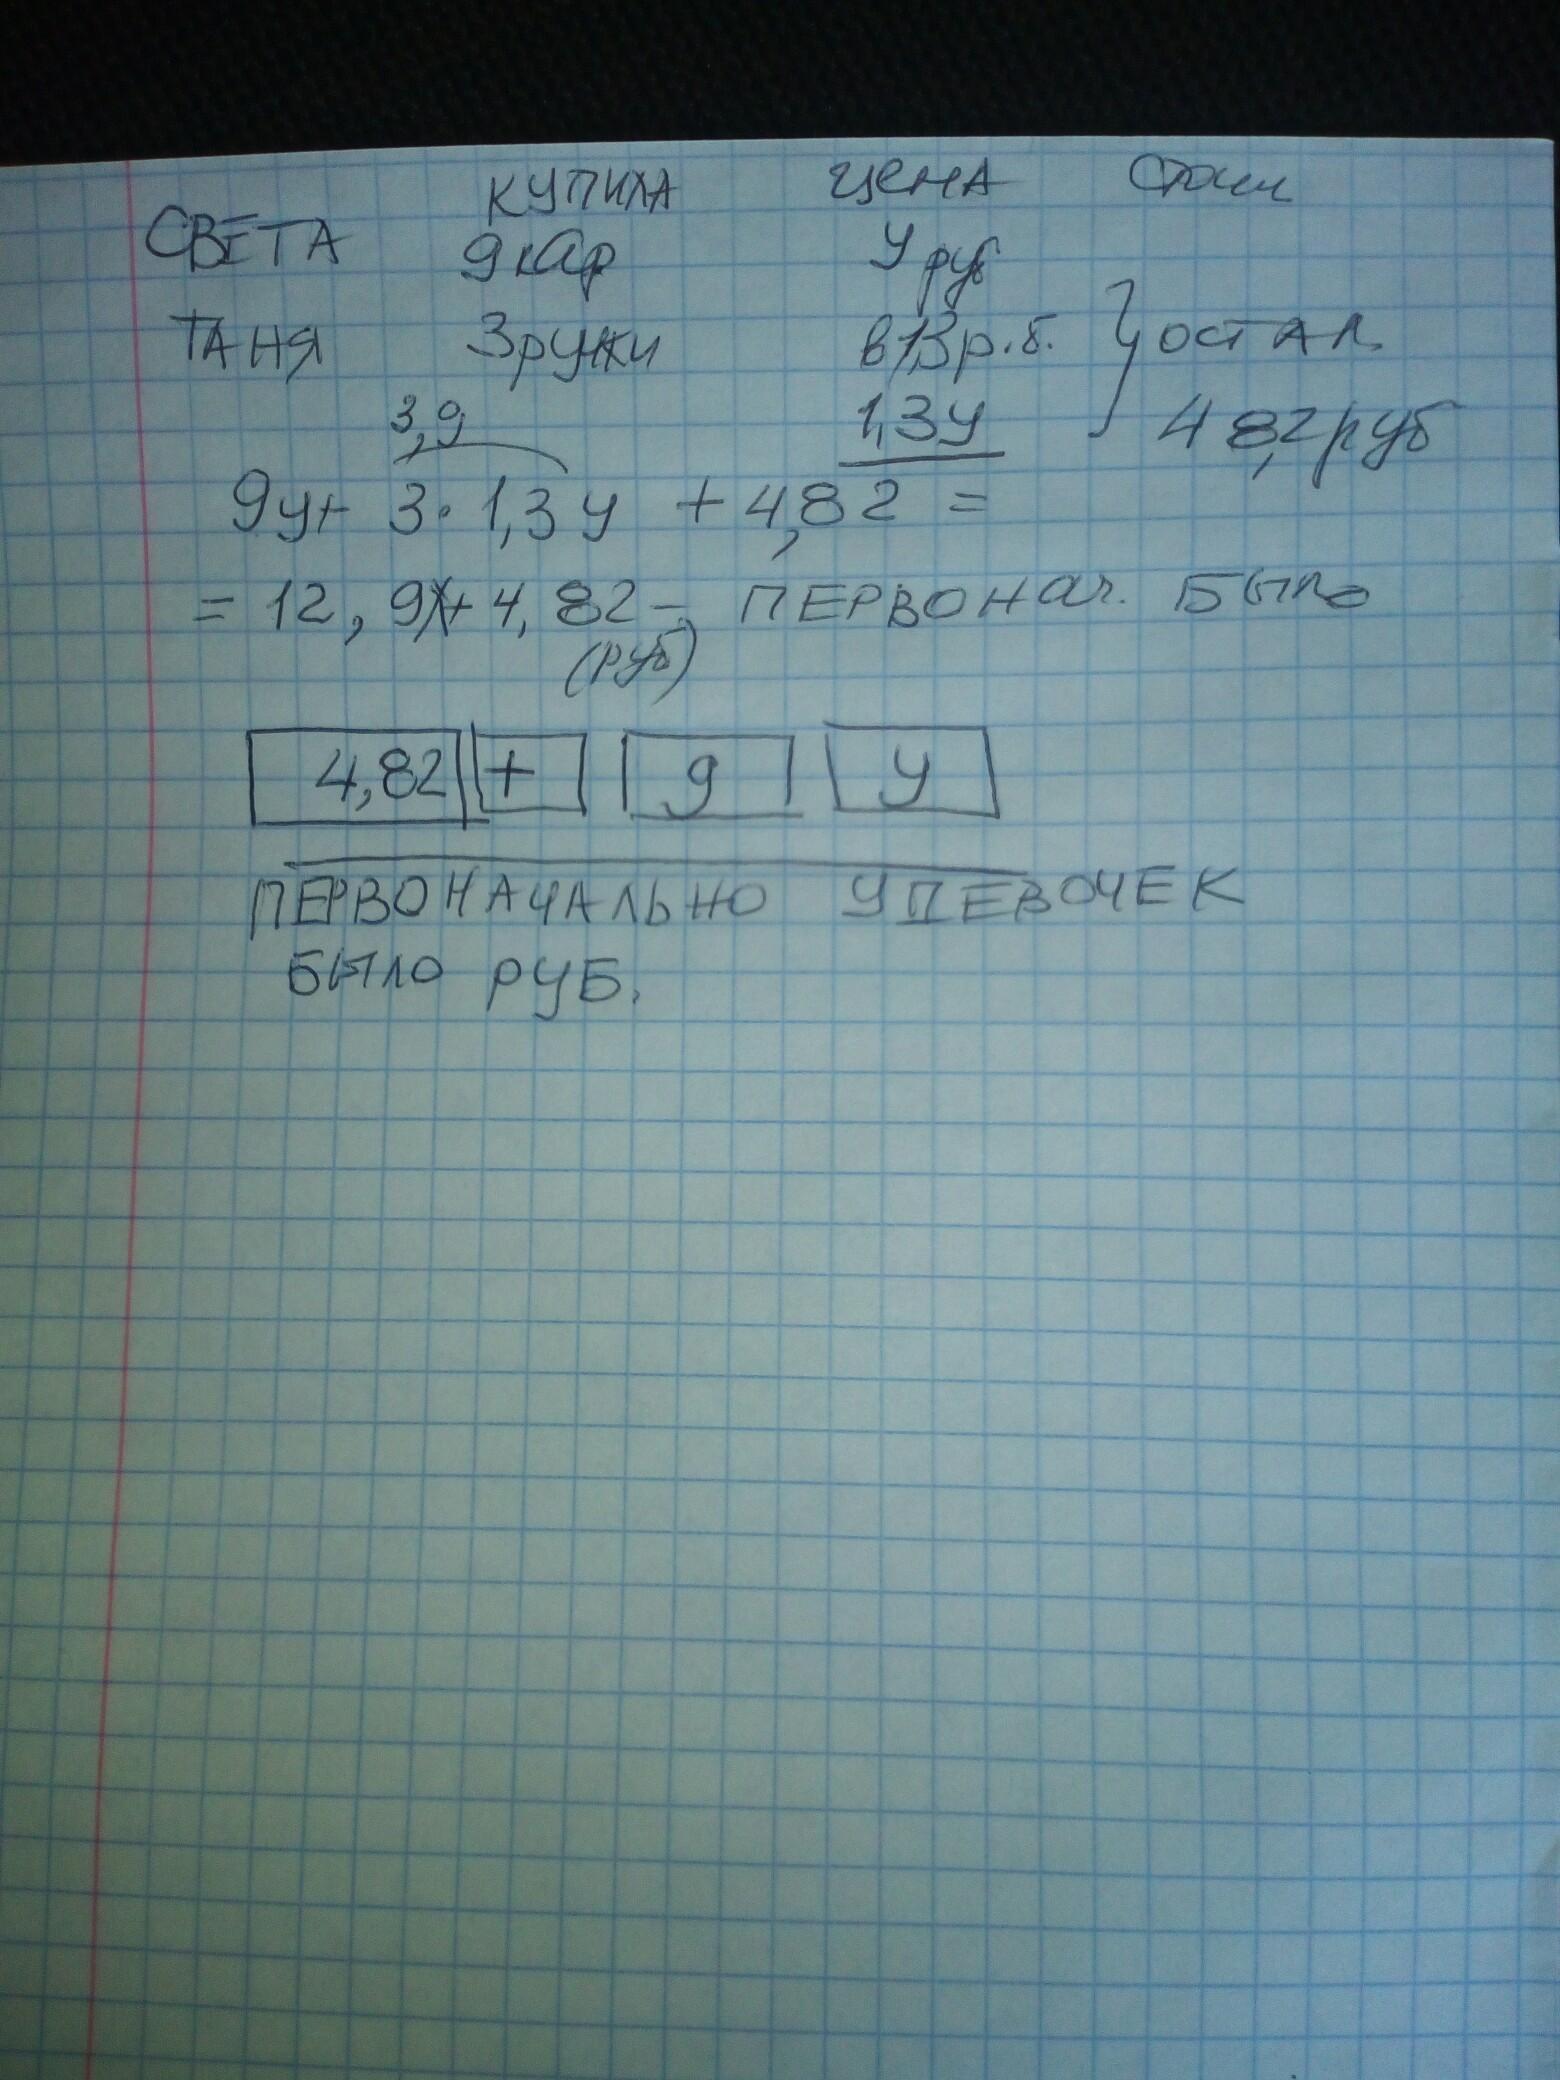 КУПИЛА ЦЕНА
СВЕТА 9 кар у руб
ТАНЯ 3 ручки в 1,3 р. б. } остал.
3,9 1,3у 4 8,2 руб
9у + 3 · 1,3 у + 4,82 =
= 12, 9у + 4, 82 – ПЕРВОНач. БЫЛО
(руб)
4,82 + 9 у
ПЕРВОНАЧАЛЬНО У ДЕВОЧЕК
БЫЛО РУБ.